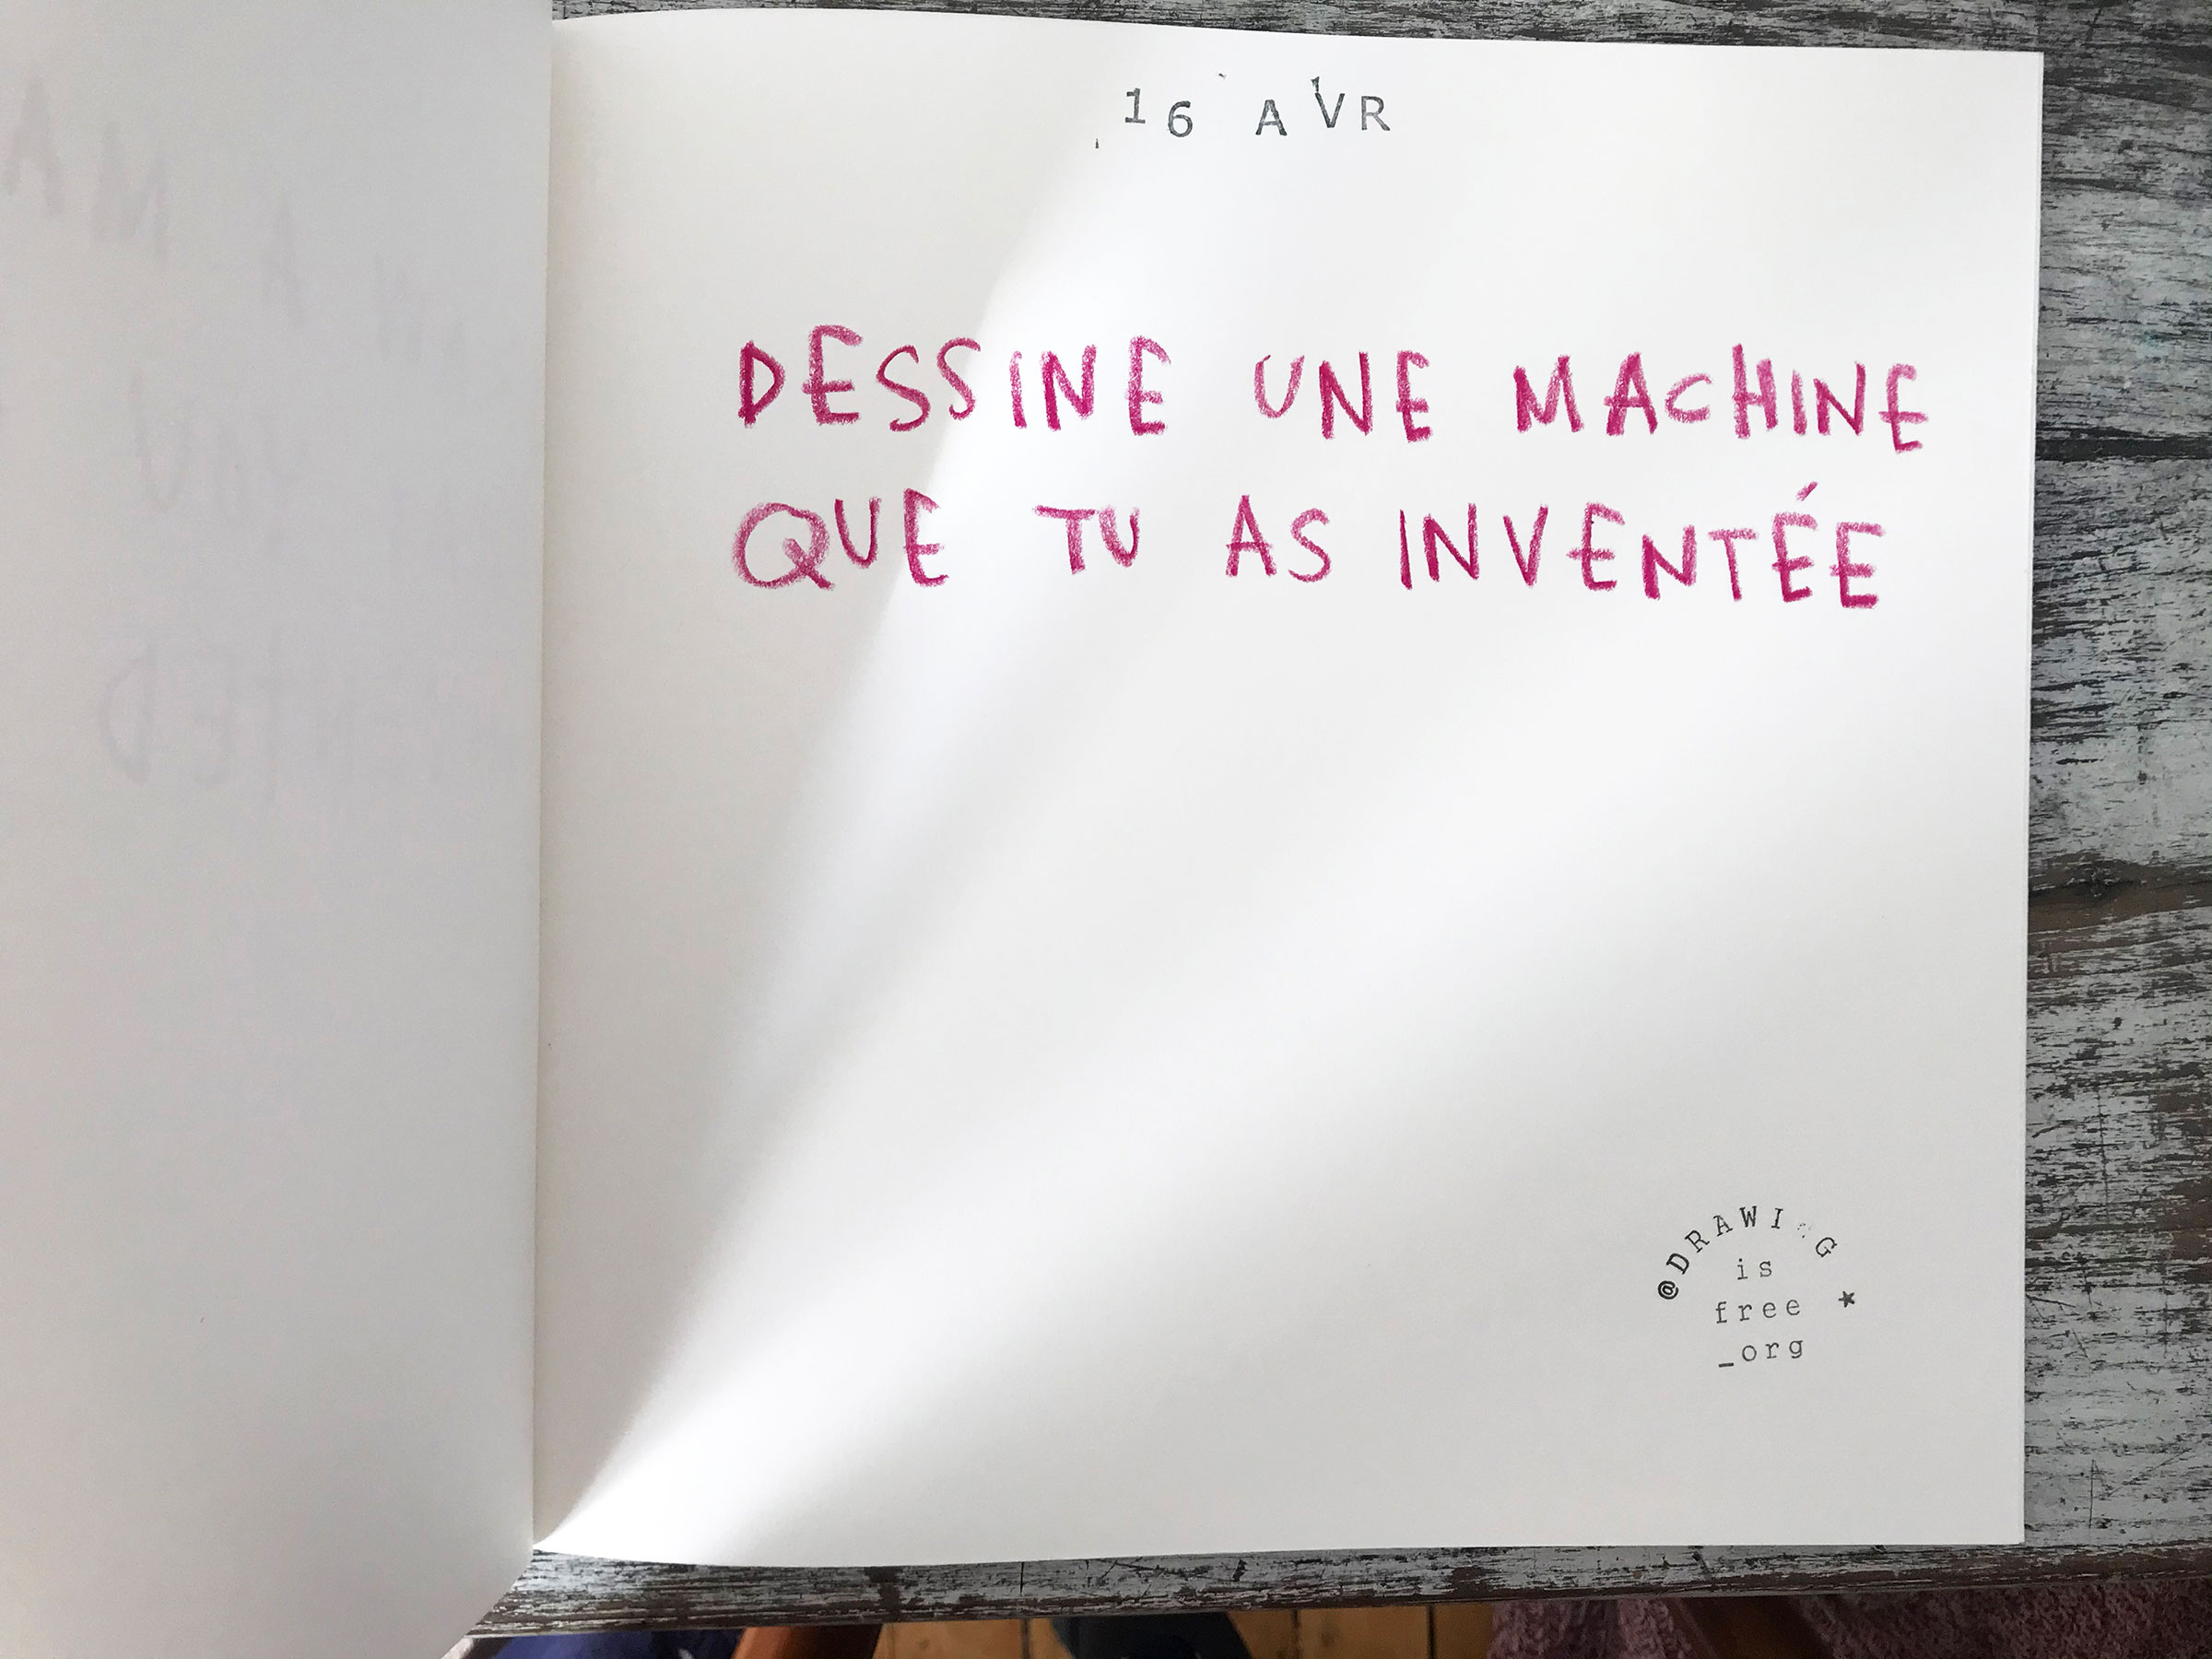 16 AVR
DESSINE UNE MACHINE
QUE TU AS INVENTÉE
@DRAWING
is
free
_org